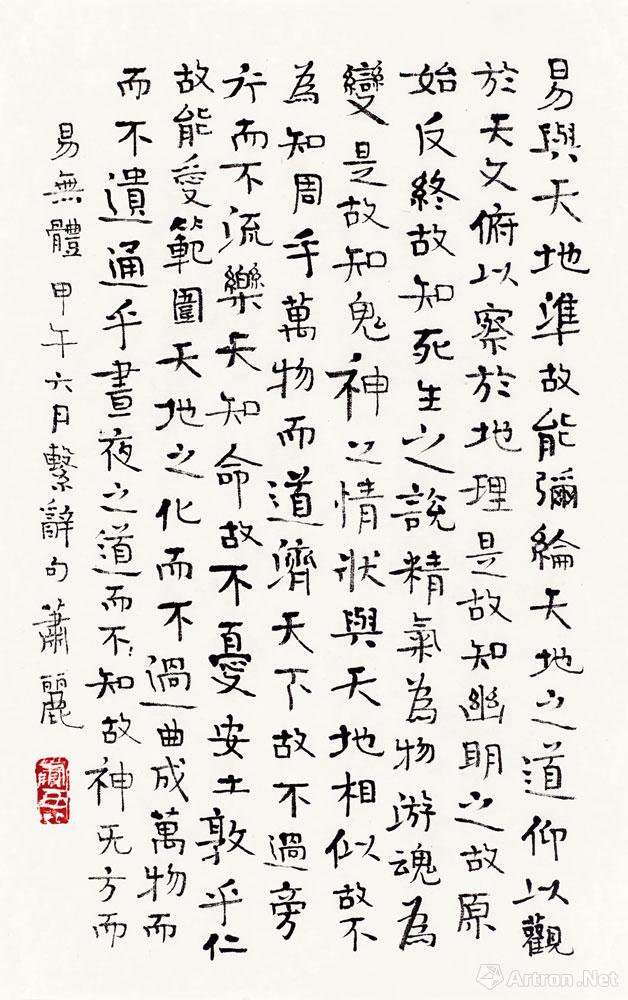 易與天地準故能彌綸天地之道仰以觀
於天文俯以察於地理是故知幽明之故原
始反終故知死生之說精氣為物游魂為
變是故知鬼神之情狀與天地相似故不
為知周乎萬物而道濟天下故不過旁
行而不流樂天知命故不憂安土敦乎仁
故能愛範圍天地之化而不過曲成萬物而
而不遺通乎晝夜之道而不知故神无方而
易無體甲午六月繫辭句蕭麗
Artron.Net